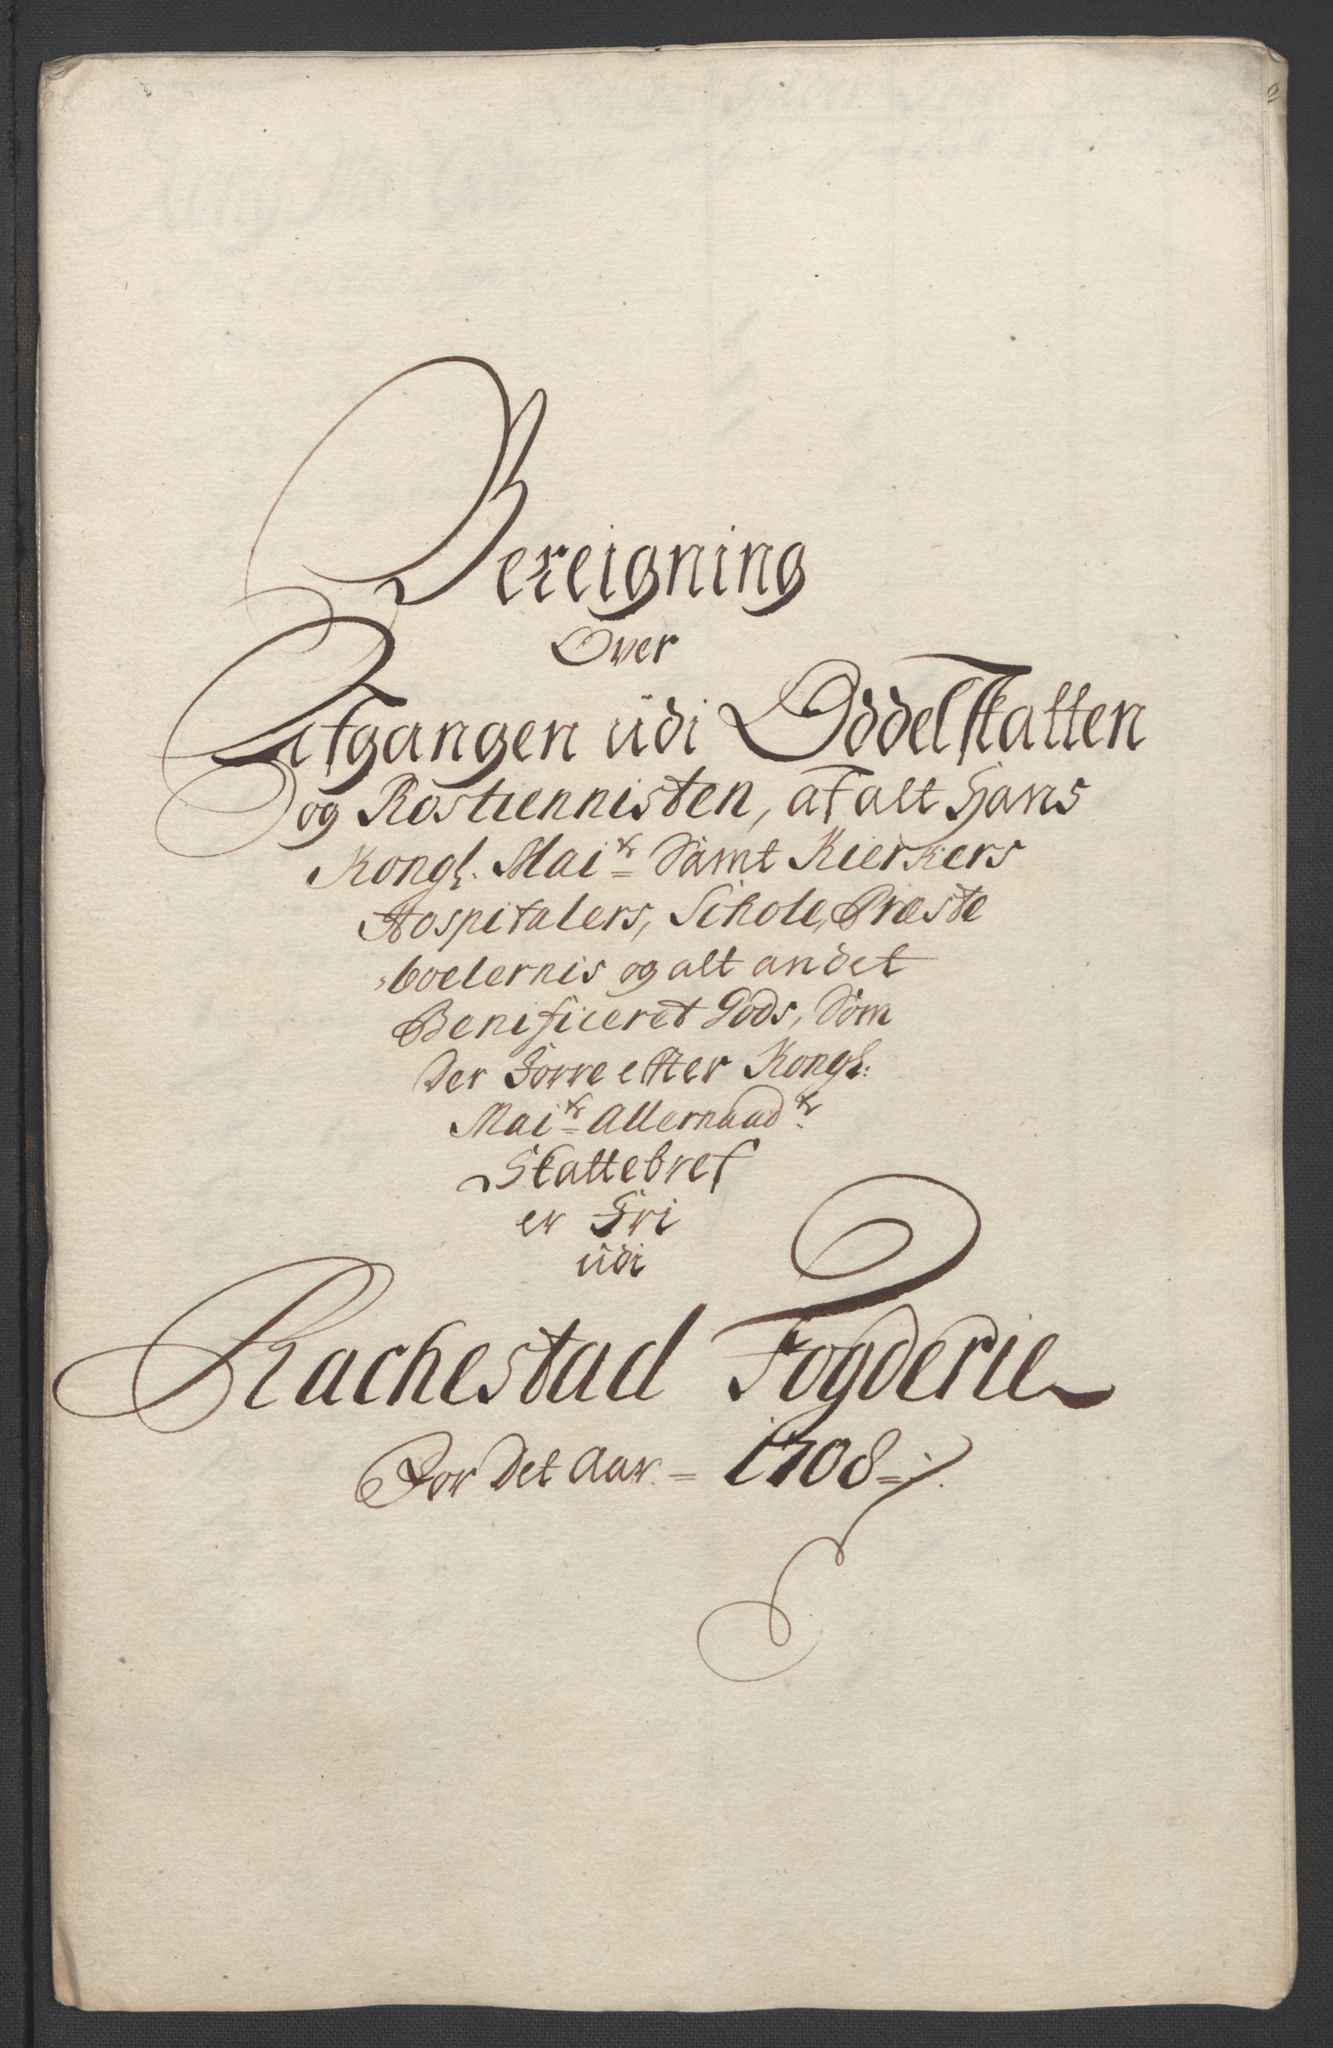 Bereigning
Over
Afgangen udi Oddelskatten
og Rostiennisten, af alt Hans
Kongl. Mai.tz Samt Kierkers
Hospitalers, Schole, Præste
boelernis og alt andet
Benificeret Gods, Som
der forre efter Kongl:
Mai.tz Allernaad.tz
Skattebref
er Fri
udi
Rachestad Fogderie
For Det Aar = 1708 =